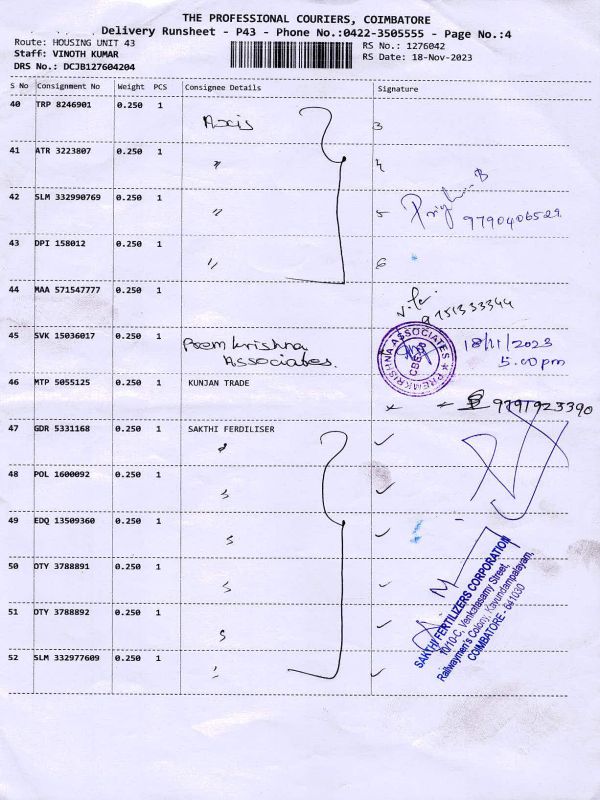 THE PROFESSIONAL COURIERS, COIMBATORE
Delivery Runsheet - P43 - Phone No.:0422-3505555 - Page No.:4
Route: HOUSING UNIT 43
RS No.: 1276042
Staff: VINOTH KUMAR
RS Date: 18-Nov-2023
DRS No.: DCJB127604204
S No Consignment No Weight PCS Consignee Details Signature
40 TRP 8246901 0.250 1 Axis 3
41 ATR 3223807 0.250 1 " 4
42 SLM 332990769 0.250 1 " 5
9790406529
43 DPI 158012 0.250 1 " 6
44 MAA 571547777 0.250 1
9151333344
45 SVK 15036017 0.250 1 Prem Krishna Associates.
PREMKRISHNA ASSOCIATES
CBE
18/11/2023
5.00pm
46 MTP 5055125 0.250 1 KUNJAN TRADE
9791923390
47 GDR 5331168 0.250 1 SAKTHI FERDILISER
48 POL 1600092 0.250 1
49 EDQ 13509360 0.250 1
50 OTY 3788891 0.250 1
51 OTY 3788892 0.250 1
52 SLM 332977609 0.250 1
SAKTHI FERTILIZERS CORPORATION
10/10-C, Venkatasamy Street,
Railwaymen's Colony, Kavundampalayam,
COIMBATORE - 641030